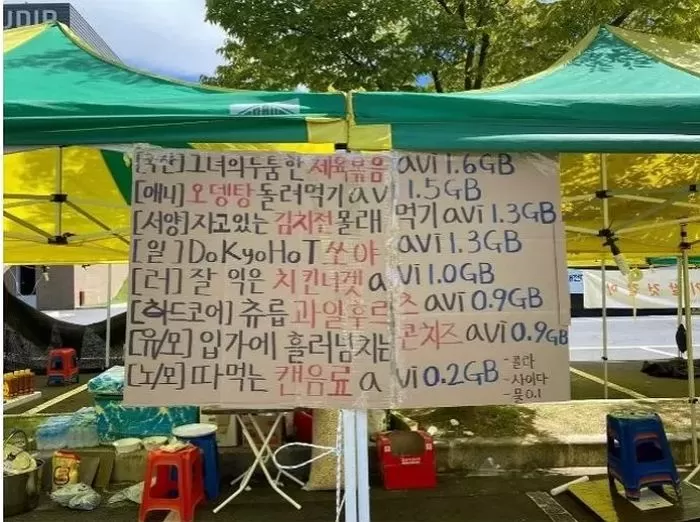 UDIP
[국산]그녀의두툼한 제육볶음 avi 1.6GB
[애니] 오뎅탕 돌려먹기 avi 1.5GB
[서양] 자고있는 김치전 몰래 먹기 avi 1.3GB
[일] DoKyoHoT 쏘야 avi 1.3GB
[러] 잘 익은 치킨너겟 avi 1.0GB
[하드코어] 츄릅 과일후르츠 avi 0.9GB
[유/모] 입가에 흘러넘치는 콘치즈 avi 0.9GB
[노/모] 따먹는 캔음료 avi 0.2GB
- 콜라
- 사이다
- 물 0.1